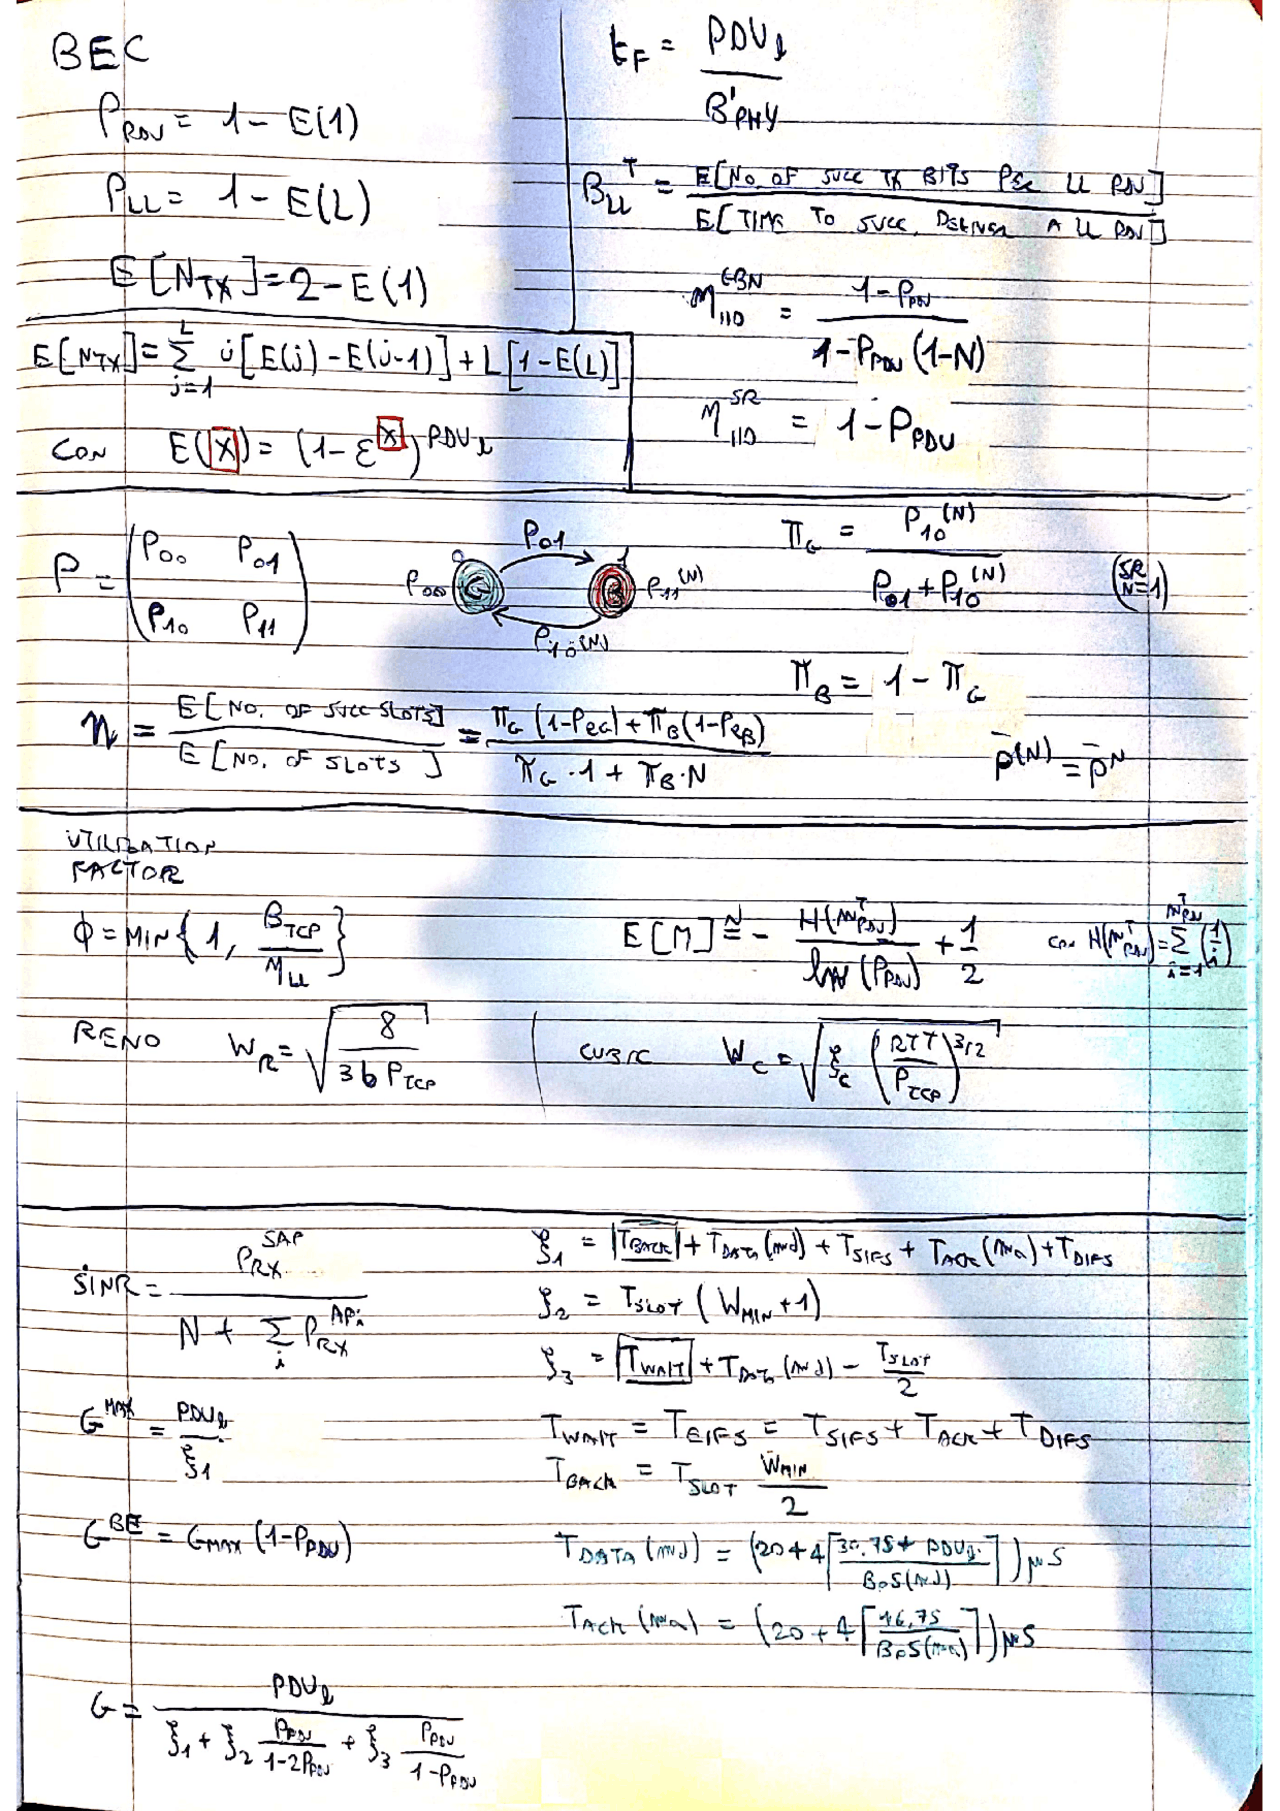 BEC
P_PDU = 1 - E(1)
P_LL = 1 - E(L)
E[N_TX] = 2 - E(1)
E[N_TX] = Σ_{j=1}^{L} j [E(j) - E(j-1)] + L[1 - E(L)]
CON E(X) = (1 - ε^X)^{PDU_l}
t_F = PDU_l / B'_PHY
B_LL^T = E[NO. OF SUCC TX BITS PER LL PDU] / E[TIME TO SUCC. DELIVER A LL PDU]
η_110^{GBN} = (1 - P_PDU) / (1 - P_PDU (1-N))
η_110^{SR} = 1 - P_PDU
P = (P_00 P_01
P_10 P_11)
0 P_01 1
P_00 G B P_11^(N)
P_10^(N)
π_G = P_10^(N) / (P_01 + P_10^(N)) (SR N=1)
π_B = 1 - π_G
η = E[NO. OF SUCC SLOTS] / E[NO. OF SLOTS] = (π_G (1-P_eG) + π_B (1-P_eB)) / (π_G · 1 + π_B · N)
P̄^(N) = P̄^N
UTILIZATION
FACTOR
ϕ = MIN { 1, B_TCP / M_LL }
E[M] ≅ - H(m_PDU^T) / ln(P_PDU) + 1/2 CON H(m_PDU^T) = Σ_{i=1}^{m_PDU^T} (1/i)
RENO W_R = √(8 / 3b P_TCP)
CUBIC W_C = √(ξ_C (RTT / P_TCP)^{3/2})
SINR = P_RX^{SAP} / (N + Σ_i P_RX^{APi})
G^MAX = PDU_l / ξ_1
G^BE = G_MAX (1 - P_PDU)
G = PDU_l / (ξ_1 + ξ_2 P_PDU / (1-2P_PDU) + ξ_3 P_PDU / (1-P_PDU))
ξ_1 = T_BACK + T_DATA (md) + T_SIFS + T_ACK (ma) + T_DIFS
ξ_2 = T_SLOT (W_MIN + 1)
ξ_3 = T_WAIT + T_DATA (md) - T_SLOT / 2
T_WAIT = T_EIFS = T_SIFS + T_ACK + T_DIFS
T_BACK = T_SLOT W_MIN / 2
T_DATA (md) = (20 + 4 ⌈(30,75 + PDU_l) / BpS(md)⌉) μS
T_ACK (ma) = (20 + 4 ⌈16,75 / BpS(ma)⌉) μS